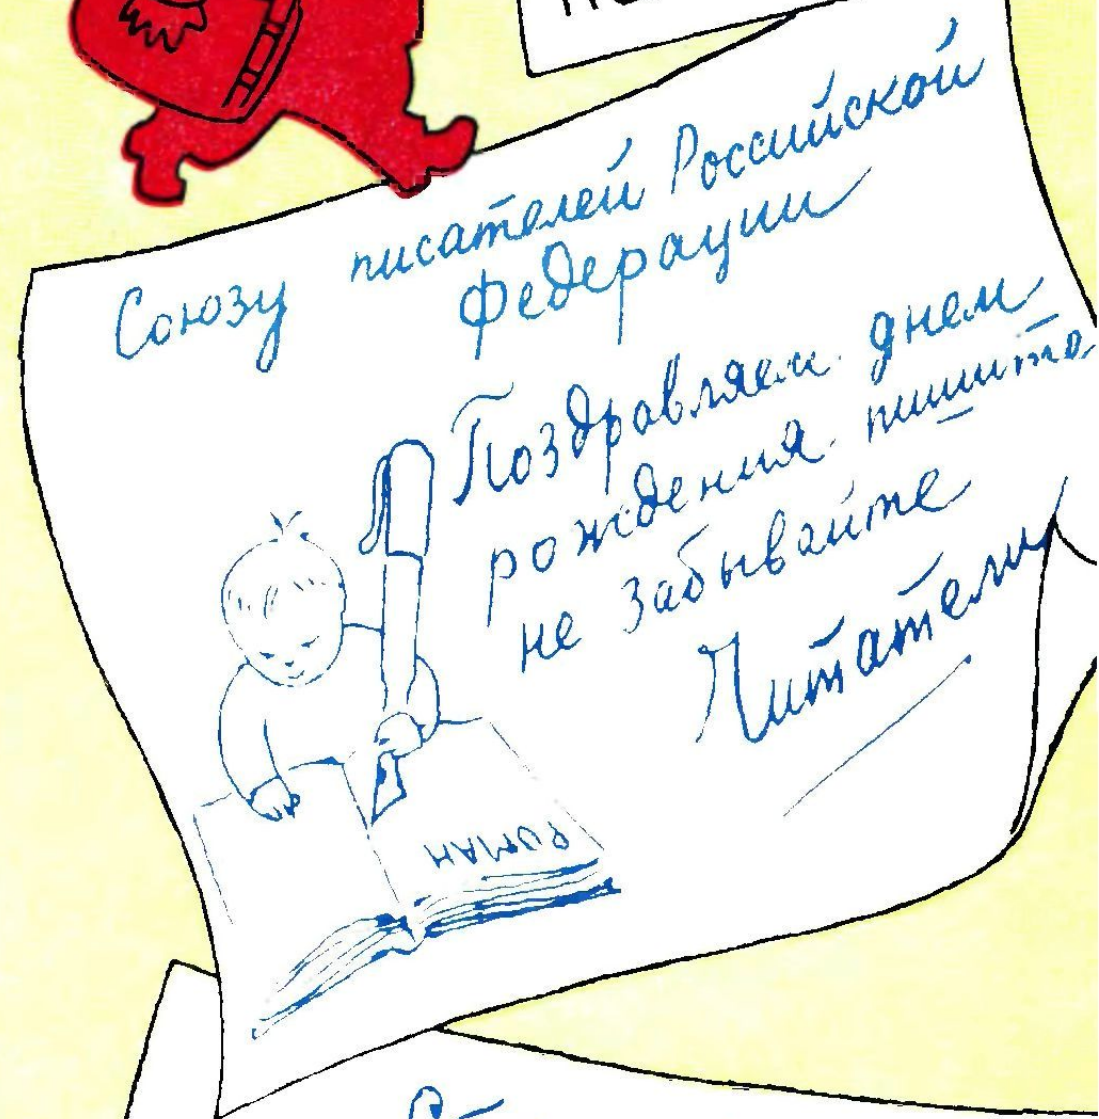 Союзу писателей Российской
Федерации
Поздравляем днем
рождения пишите
не забывайте
Читатели
РОМАН